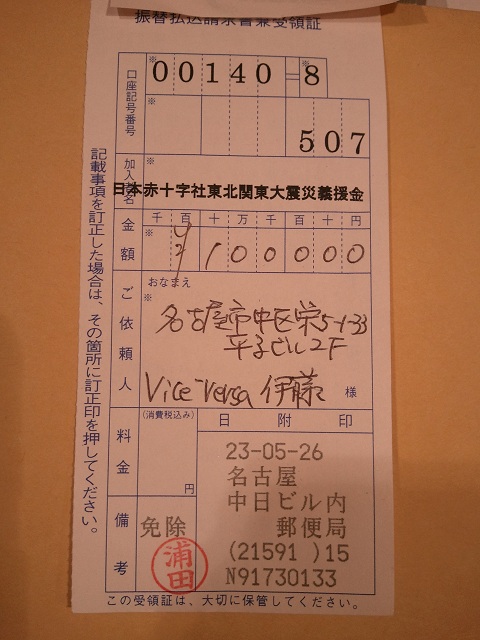 振替払込請求書兼受領証
口座記号番号
※
00140=8
※
※
507
加入者名
※
日本赤十字社東北関東大震災義援金
金額
千百十万千百十円
※
¥100000
ご依頼人
おなまえ
※
名古屋市中区栄5-1-33
平子ビル2F
Vice Versa 伊藤 様
料金
(消費税込み)
円
備考
免除
浦田
日附印
23-05-26
名古屋
中日ビル内
郵便局
(21591 )15
N91730133
記載事項を訂正した場合は、その箇所に訂正印を押してください。
この受領証は、大切に保管してください。